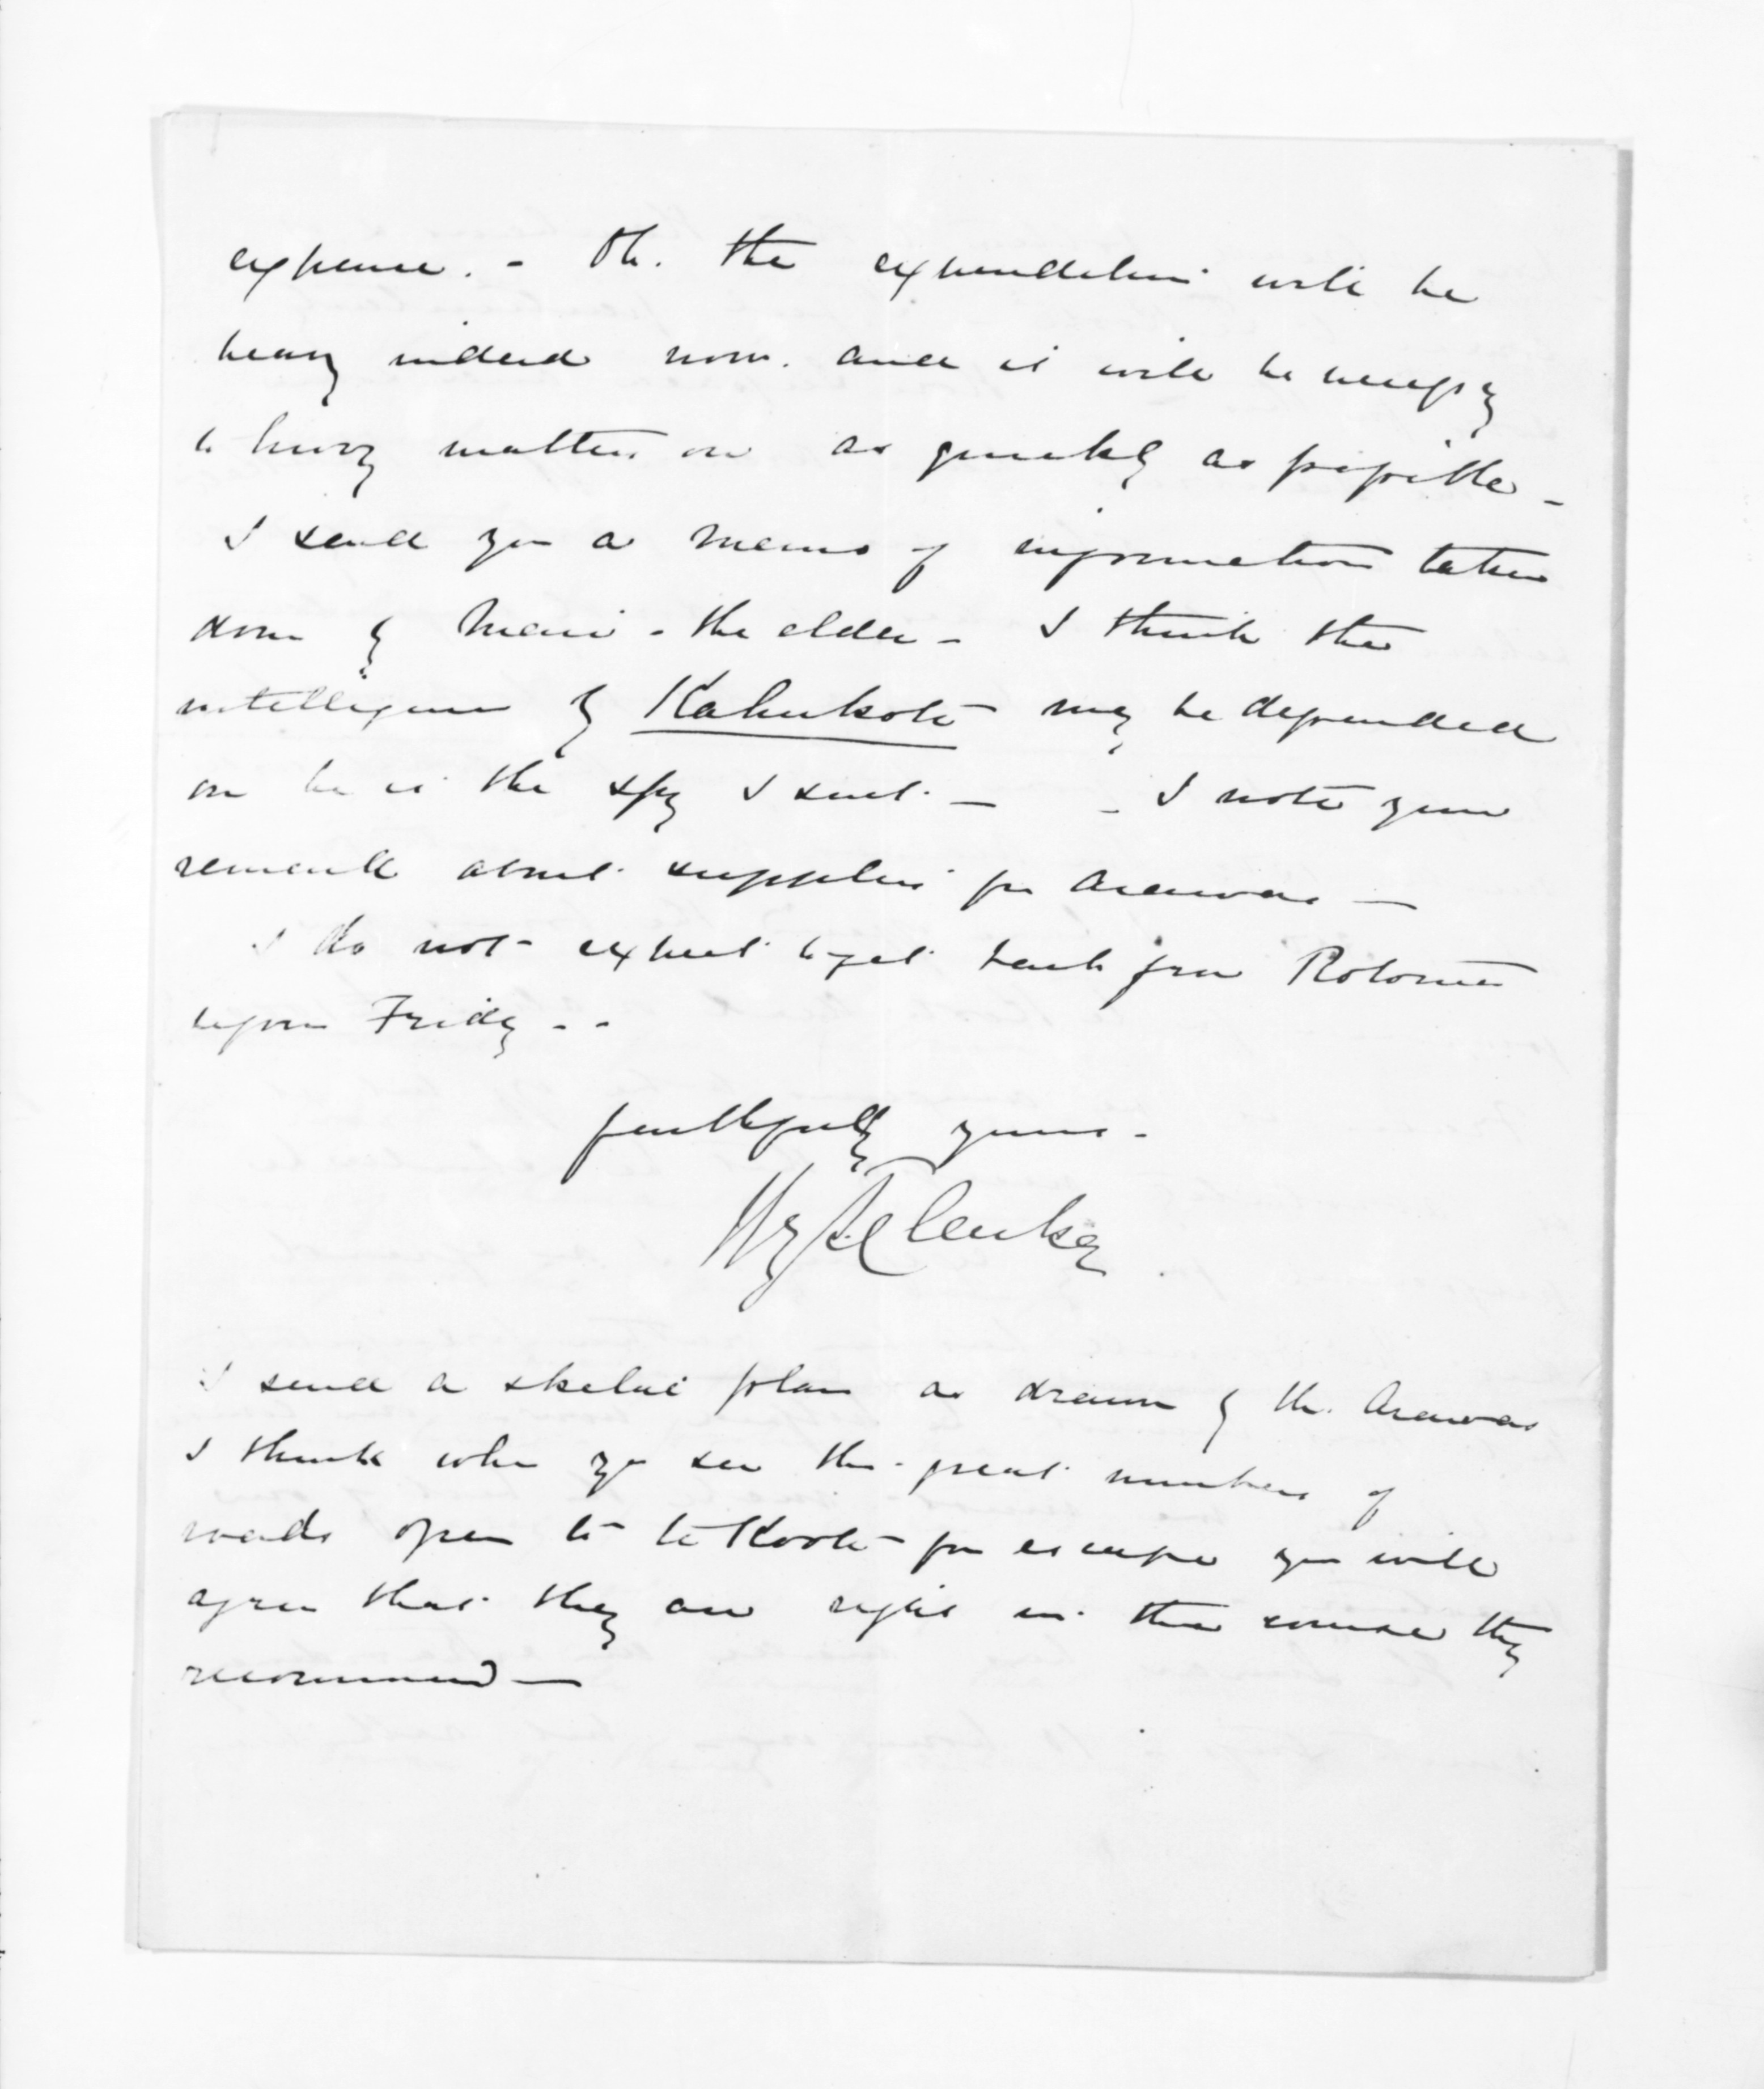 expense. - Oh. the expenditure will be
heavy indeed now. and it will be necessy
to hurry matters on as quickly as possible -
I send you a memo of information taken
down by Mair - the elder - I think the
intelligence of Kahukoti may be depended
on he is the spy I sent. - - I note your
remark about supplies for Arawas -
I do not expect to get back from Rotorua
before Friday - -
faithfully yours -
Hy T Clarke.
I send a skeleton plan as drawn by the Arawas
I think when you see the great numbers of
roads open to te Kooti for escape you will
agree that they are right in the course they
recommend -